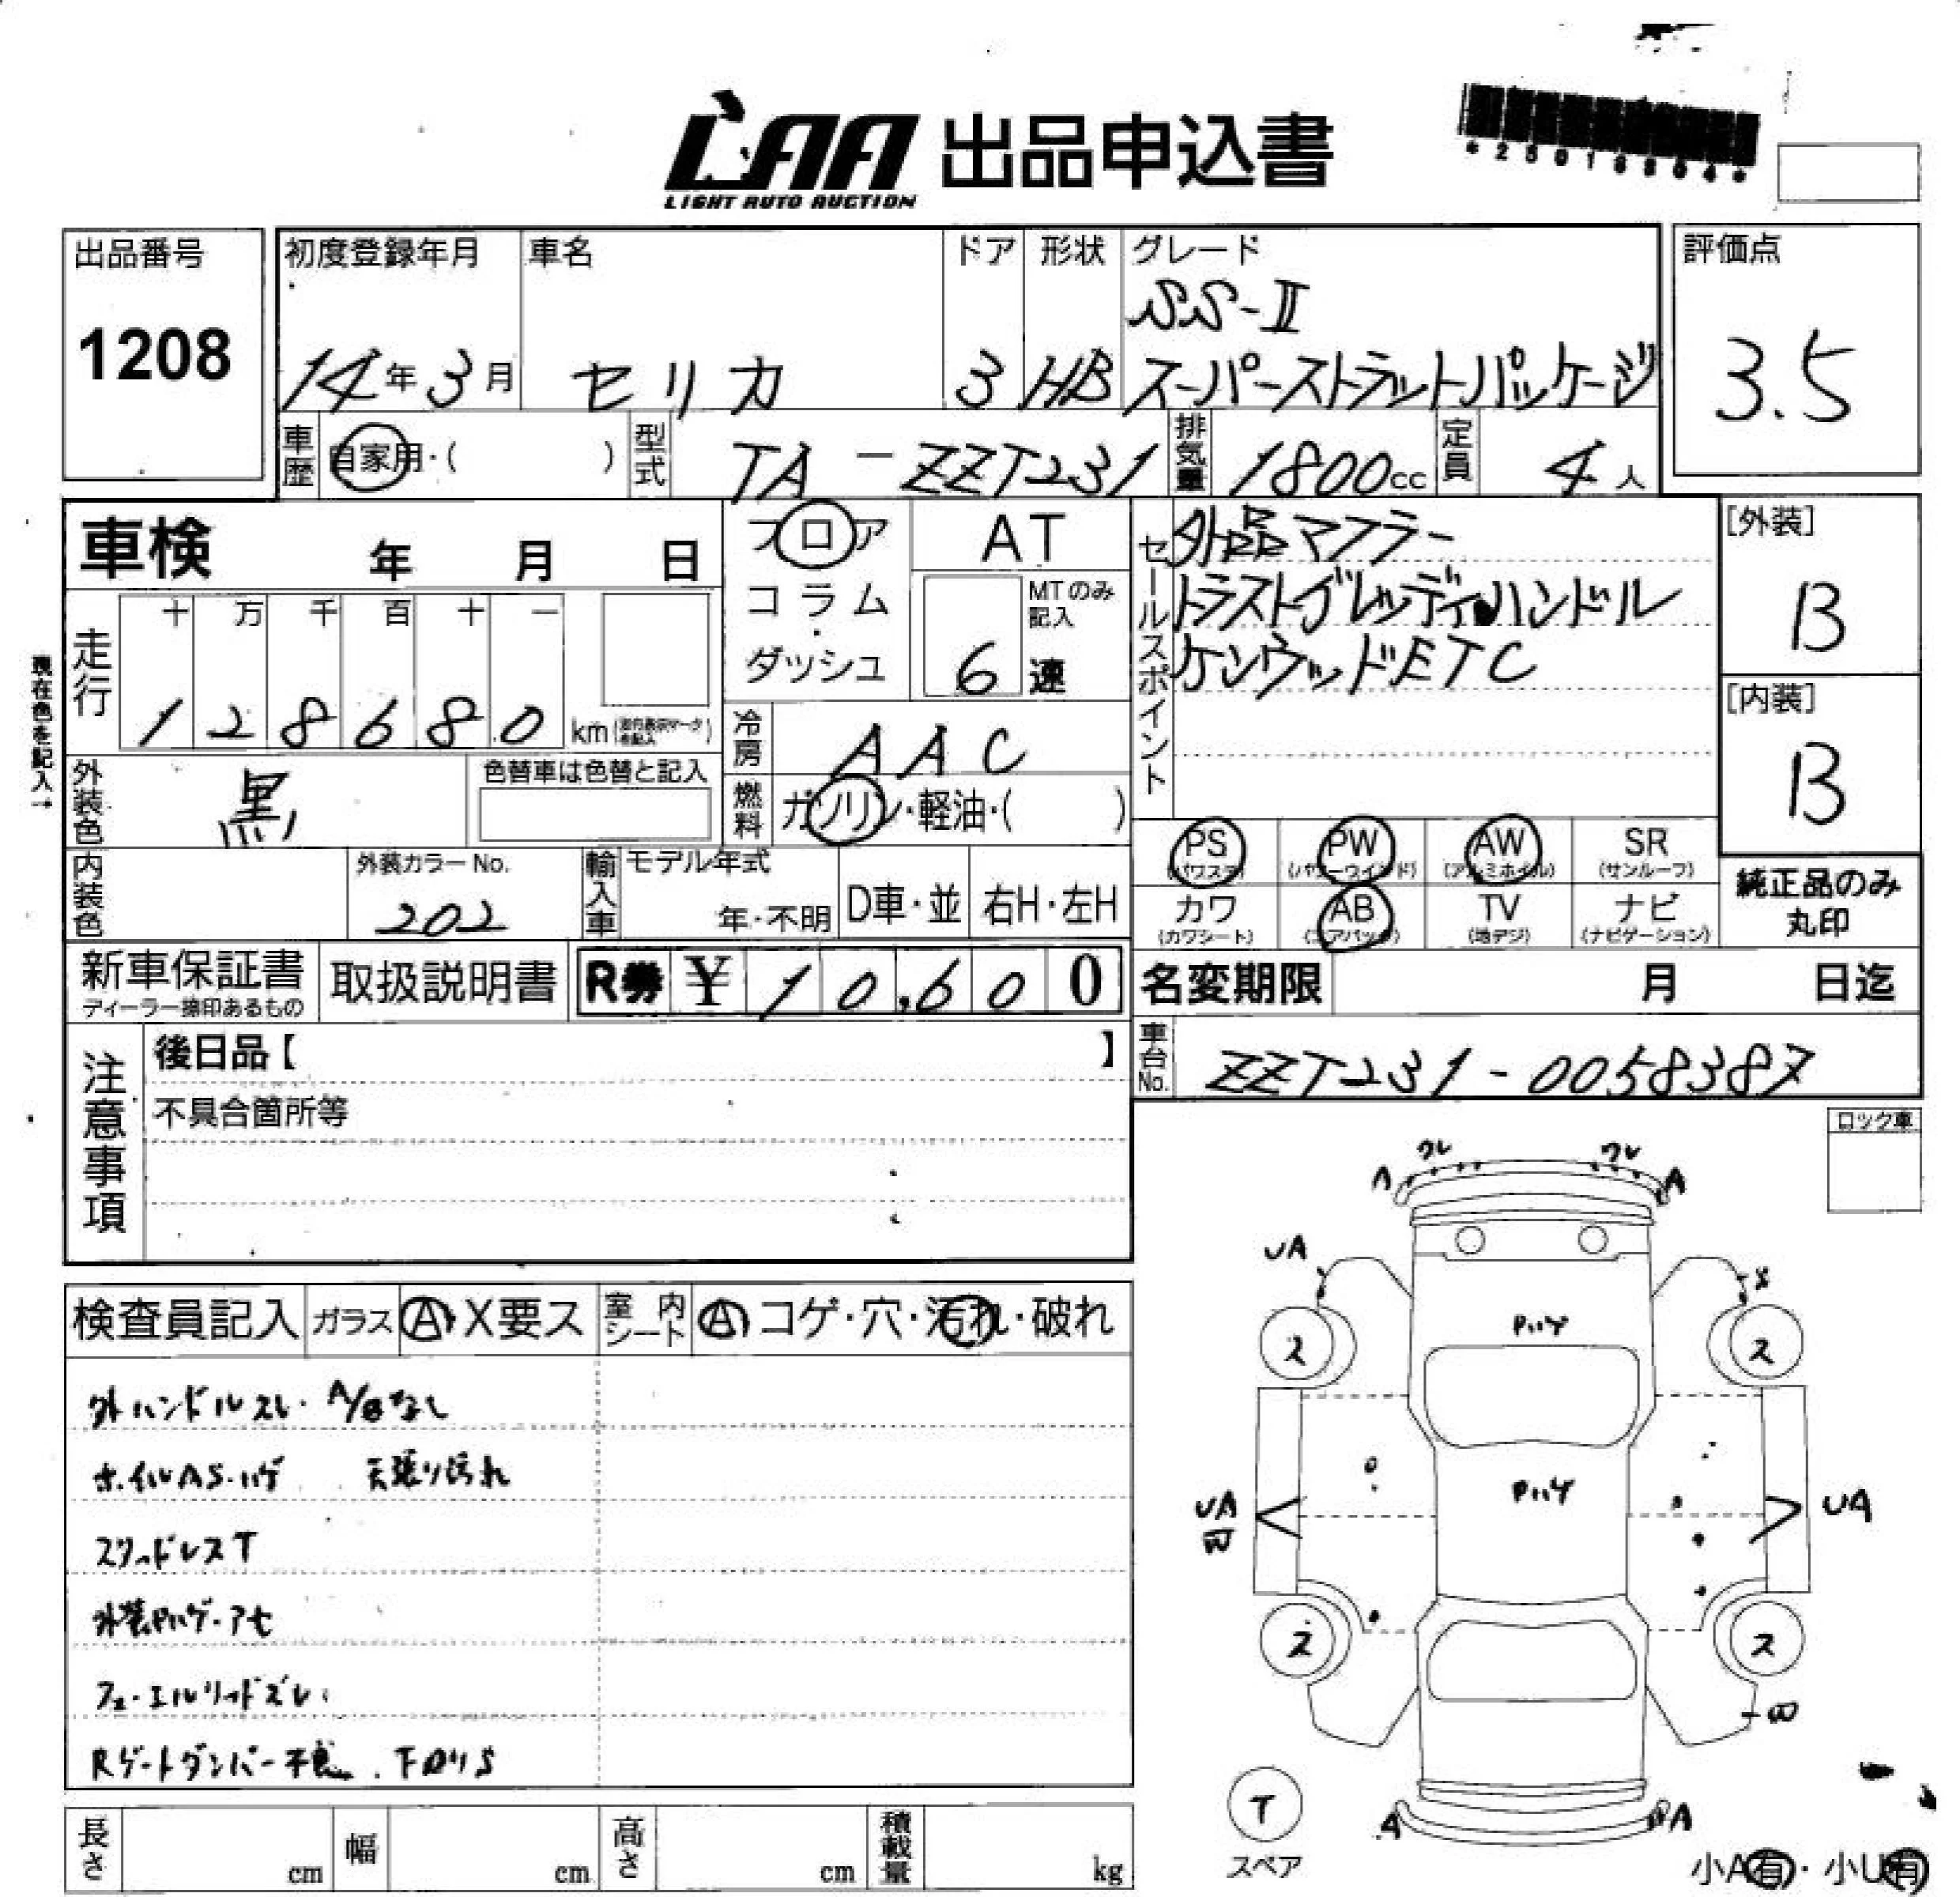 LAA 出品申込書
LIGHT AUTO AUCTION
出品番号
1208
初度登録年月
14年3月
車名
セリカ
ドア
3
形状
HB
グレード
SS-Ⅱ
スーパーストラットパッケージ
評価点
3.5
車歴
自家用・( )
型式
TA-ZZT231
排気量
1800cc
定員
4人
車検 年 月 日
フロア
コラム
・
ダッシュ
AT
MTのみ記入
6速
セールスポイント
外品マフラー
トラストグレッディハンドル
ケンウッドETC
[外装]
B
[内装]
B
走行
十 万 千 百 十 一
1 2 8 6 8 0 km
現在色を記入→
冷房
AAC
燃料
ガソリン・軽油・( )
外装色
黒
色替車は色替と記入
内装色
外装カラーNo.
202
輸入車
モデル年式
年・不明
D車・並
右H・左H
PS
(パワステ)
PW
(パワーウインド)
AW
(アルミホイル)
SR
(サンルーフ)
カワ
(カワシート)
AB
(エアバック)
TV
(地デジ)
ナビ
(ナビゲーション)
純正品のみ
丸印
新車保証書
ディーラー捺印あるもの
取扱説明書
R券 ¥ 10,600
名変期限 月 日迄
注意事項
後日品【 】
不具合箇所等
車台No.
ZZT231-0058387
ロック車
検査員記入
ガラス A X要ス
室内シート A コゲ・穴・汚れ・破れ
外ハンドルスレ. A/Bなし
ホイルAS・ハゲ 天張り汚れ
スタッドレスT
外装Pハゲ・アセ
フューエルリッドズレ
Rゲートダンパー不良. 下回りS
ワレ ワレ
A A
UA
Pハゲ
ス ス
Pハゲ
UA
UA
ス ス
T
スペア
A A
小A有・小U有
長さ cm
幅 cm
高さ cm
積載量 kg